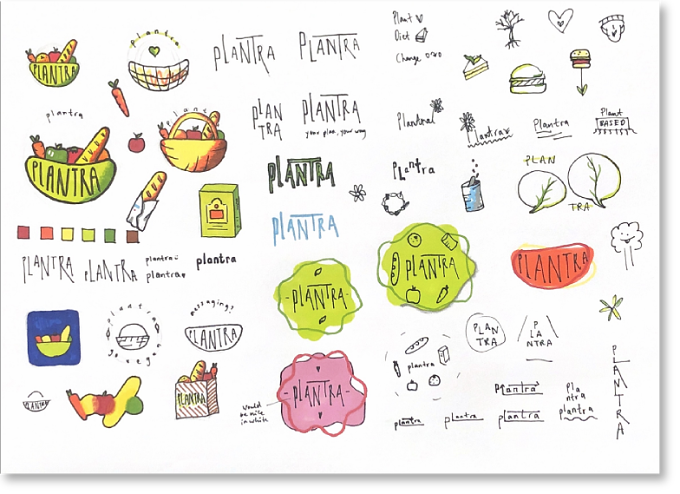 PLANTRA
plantra
PLANTRA
PLANTRA
Plant
Diet
Change
plantra
PLAN
TRA
PLANTRA
your plan, your way
Plantra
Plantra
Plantra
Plant
BASED
plant
PLANTRA
PLANTRA
Plantra
PLAN
TRA
PLANTRA
PLANTRA
PLANTRA
plantra
plantra
plantra
PLANTRA
PLANTRA
PLANTRA
PLANTRA
plantra
go vegan
packaging?
PLANTRA
PLANTRA
PLANTRA
PLANTRA
would
be nice
in white
plantra
PLAN
TRA
P
LA
NTRA
PLANTRA
plantra
plantra
PLANTRA
plantra
pla
ntra
plantra
PLANTRA